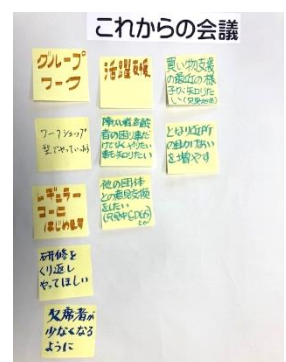 これからの会議
グループ
ワーク
ワークショップ
型でやっていこう
レギュラー
コーヒー
はじめよう
研修を
くり返し
やってほしい
欠席者が
少なくなる
ように
活躍支援
障がい者、高齢
者の困り事だ
けでなく、やりたい
事も知りたい
他の団体
との意見交換
をしたい
買い物支援
の最近の様
子が知りた
となり近所
の助けあい
を増やす